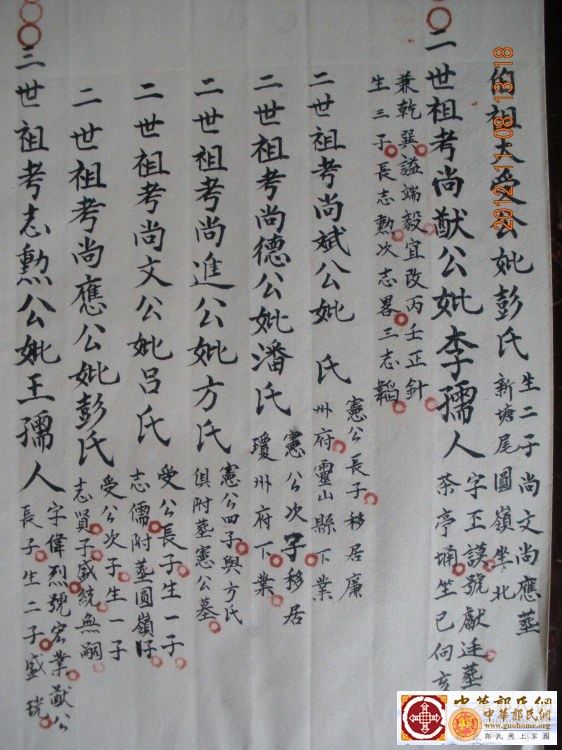 伯祖太受公妣彭氏
生二子尚文尚應葬
新塘尾圓嶺坐北
二世祖考尚猷公妣李孺人
字丕謨號獻廷葬
茶亭坐巳向亥
兼乾巽謚端毅宜改丙壬正針
生三子長志勲次志畧三志韜
二世祖考尚斌公妣 氏
憲公長子移居廉
州府靈山縣下業
二世祖考尚德公妣潘氏
憲公次子移居
瓊州府下業
二世祖考尚進公妣方氏
憲公四子與方氏
俱附葬憲公墓
二世祖考尚文公妣呂氏
受公長子生一子
志儒附葬圓嶺仔
二世祖考尚應公妣彭氏
受公次子生一子
志賢子盛統無嗣
三世祖考志勲公妣王孺人
字偉烈號宏業猷公
長子生二子盛琥
2012.11.08 13:18
中華郭氏網
www.guohome.org
郭氏網上家園
中華郭氏網
www.guohome.org
郭氏網上家園